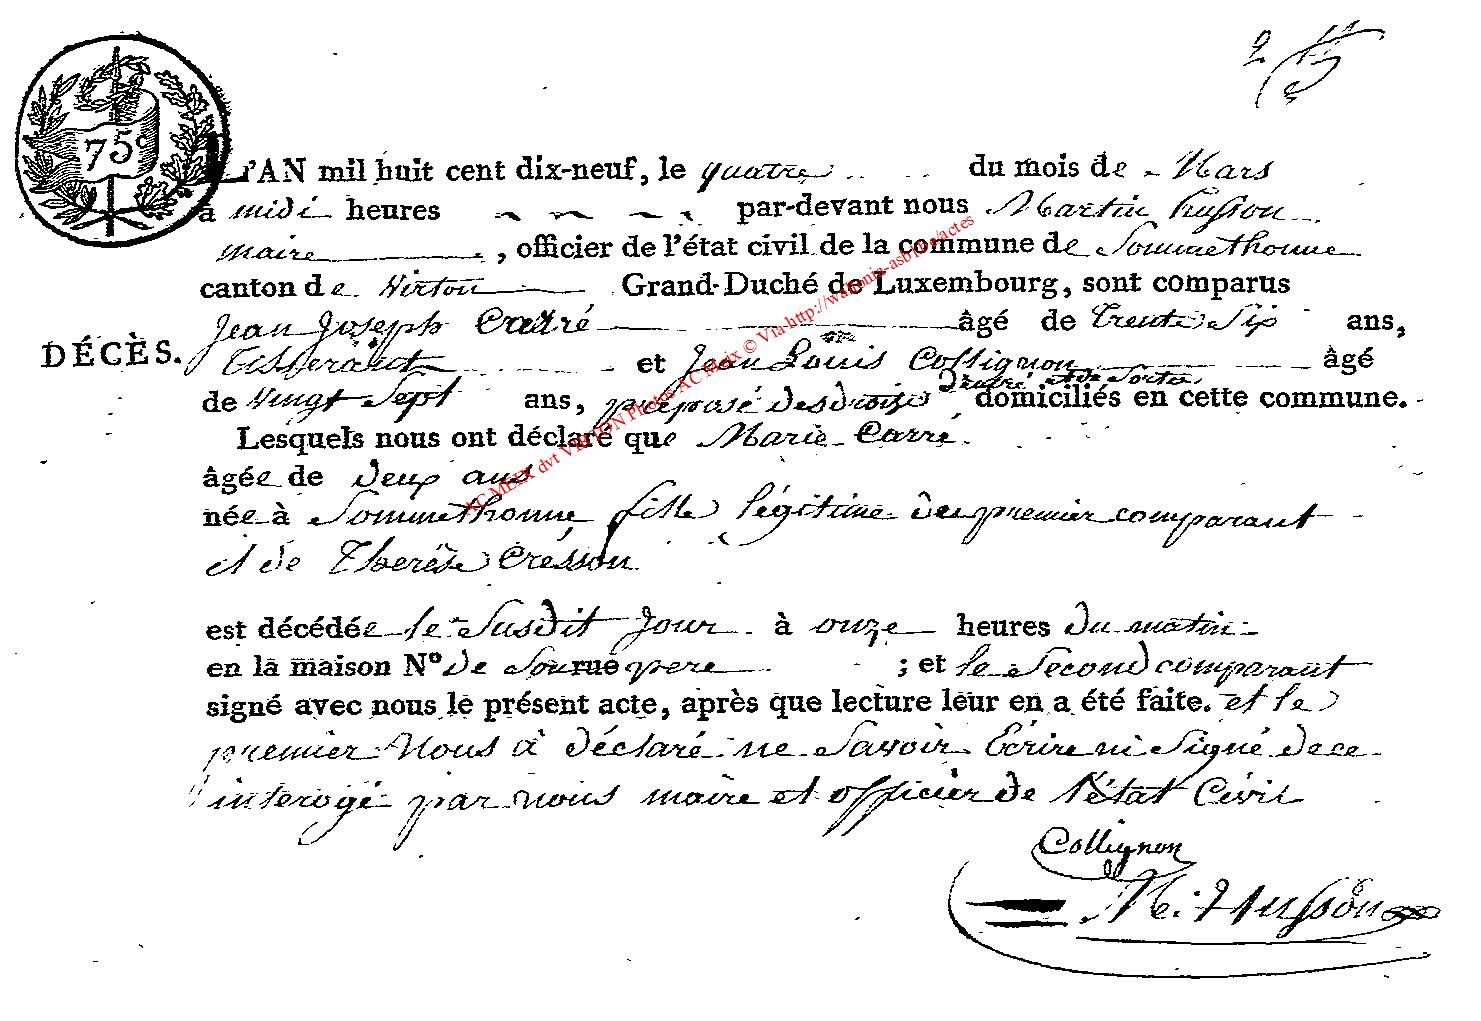 2
75c
L'AN mil huit cent dix-neuf, le quatre du mois de Mars
à midi heures par-devant nous Martin husson
maire, officier de l'état civil de la commune de Sommethonne
canton de Virton Grand-Duché de Luxembourg, sont comparus
Jean Joseph Carré âgé de trente Six ans,
DÉCÈS.
tisserant et Jean Louis Collignon âgé
d'entré et de Sortie
de Vingt Sept ans, preposé des droits domiciliés en cette commune.
Lesquels nous ont déclaré que Marie Carré
âgée de deux ans
née à Sommethonne fille légitime du premier comparant
et de Therèse Cresson
est décédée le Susdit Jour à onze heures du matin
en la maison N° de Son rue pere ; et le Second comparant
signé avec nous le présent acte, après que lecture leur en a été faite. et le
premier Nous à déclaré ne Savoir Écrire ni Signé de ce
interogé par nous maire et officier de l'état Civil
Collignon
M. Husson
AC MEIX dvt VIRTON Photos AC Meix © Via http://wallonia-asbl.be/actes